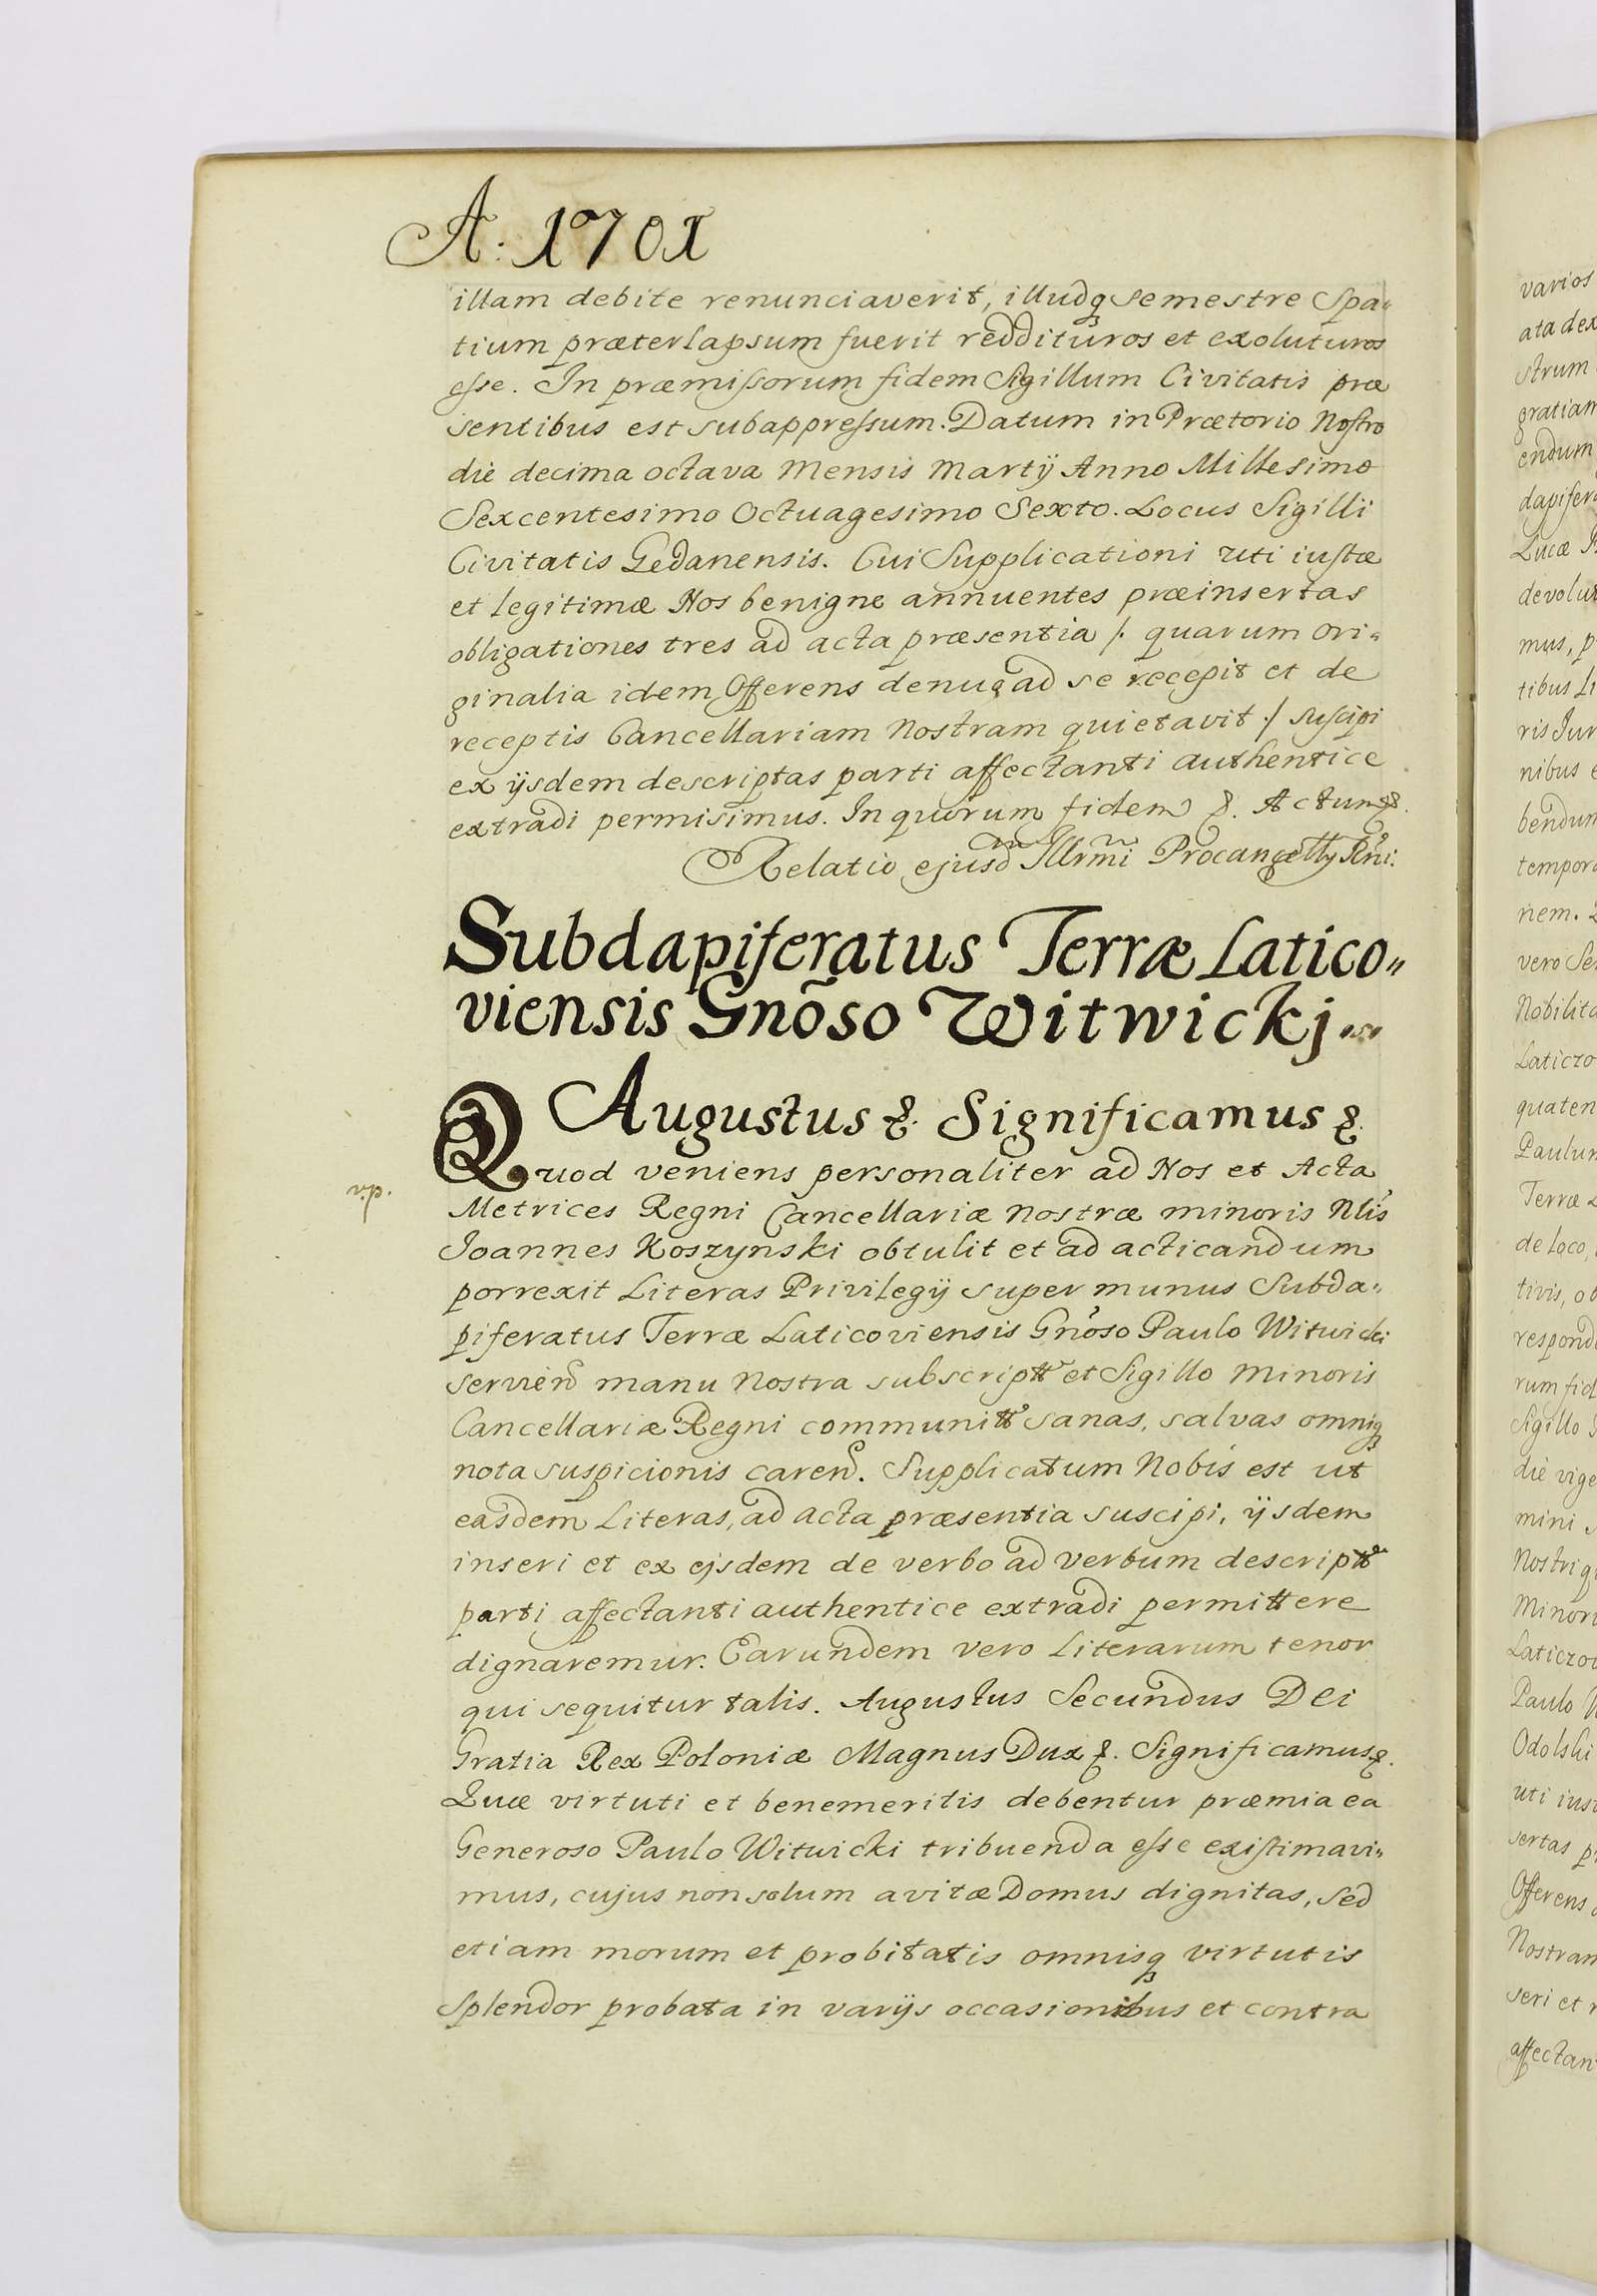 A. 1701
illam debite renunciaverit, illudq semestre Spa„
tium præterlapsum fuerit reddituros et exoluturos
esse. In præmissorum fidem Sigillum Civitatis præ
sentibus est subappressum. Datum in Prætorio Nostro
die decima octava Mensis Martij Anno Millesimo
Sexcentesimo Octuagesimo Sexto. Locus Sigilli
Civitatis Gedanensis. Cui Supplicationi uti iustæ
et legitimæ Nos benigne annuentes præinsertas
obligationes tres ad acta præsentia /. quarum ori„
ginalia idem Offerens denuq ad se recepit et de
receptis Cancellariam Nostram quietavit ./ suscipi
ex ijsdem descriptas parti affectanti authentice
extradi permisimus. In quorum fidem &. Actum &.
Relatio ejusd Illrmi Procancellij Rni:
Subdapiferatus Terræ Latico„
viensis Gnõso Witwickj
Augustus &. Significamus &.
Quod veniens personaliter ad Nos et Acta
v.p.
Metrices Regni Cancellariæ nostræ minoris Nlis
Joannes Koszynski obtulit et ad acticandum
porrexit Literas Privilegij super munus Subda„
piferatus Terræ Laticoviensis Gnoso Paulo Witwicki
servien manu Nostra subscriptt et Sigillo Minoris
Cancellariæ Regni communitt sanas, salvas omniq
nota suspicionis caren. Supplicatum Nobis est ut
easdem Literas, ad acta præsentia suscipi, ijsdem
inseri et ex ejsdem de verbo ad verbum descriptt
parti affectanti authentice extradi permittere
dignaremur. Earundem vero Literarum tenor
qui sequitur talis. Augustus Secundus Dei
Gratia Rex Poloniæ Magnus Dux &. Significamus &.
Quæ virtuti et benemeritis debentur præmia ea
Generoso Paulo Witwicki tribuenda esse existimavi„
mus, cujus non solum avitæ Domus dignitas, sed
etiam morum et probitatis omnisq virtutis
splendor probata in varijs occasionibus et contra
varios
strum
gratiam
endum
mus, p
nibus
tempora
nem.
Terræ
de loco,
tivis, ob
mini
Paulo
Odolski
Offerens
Nostram
seri et
affectan